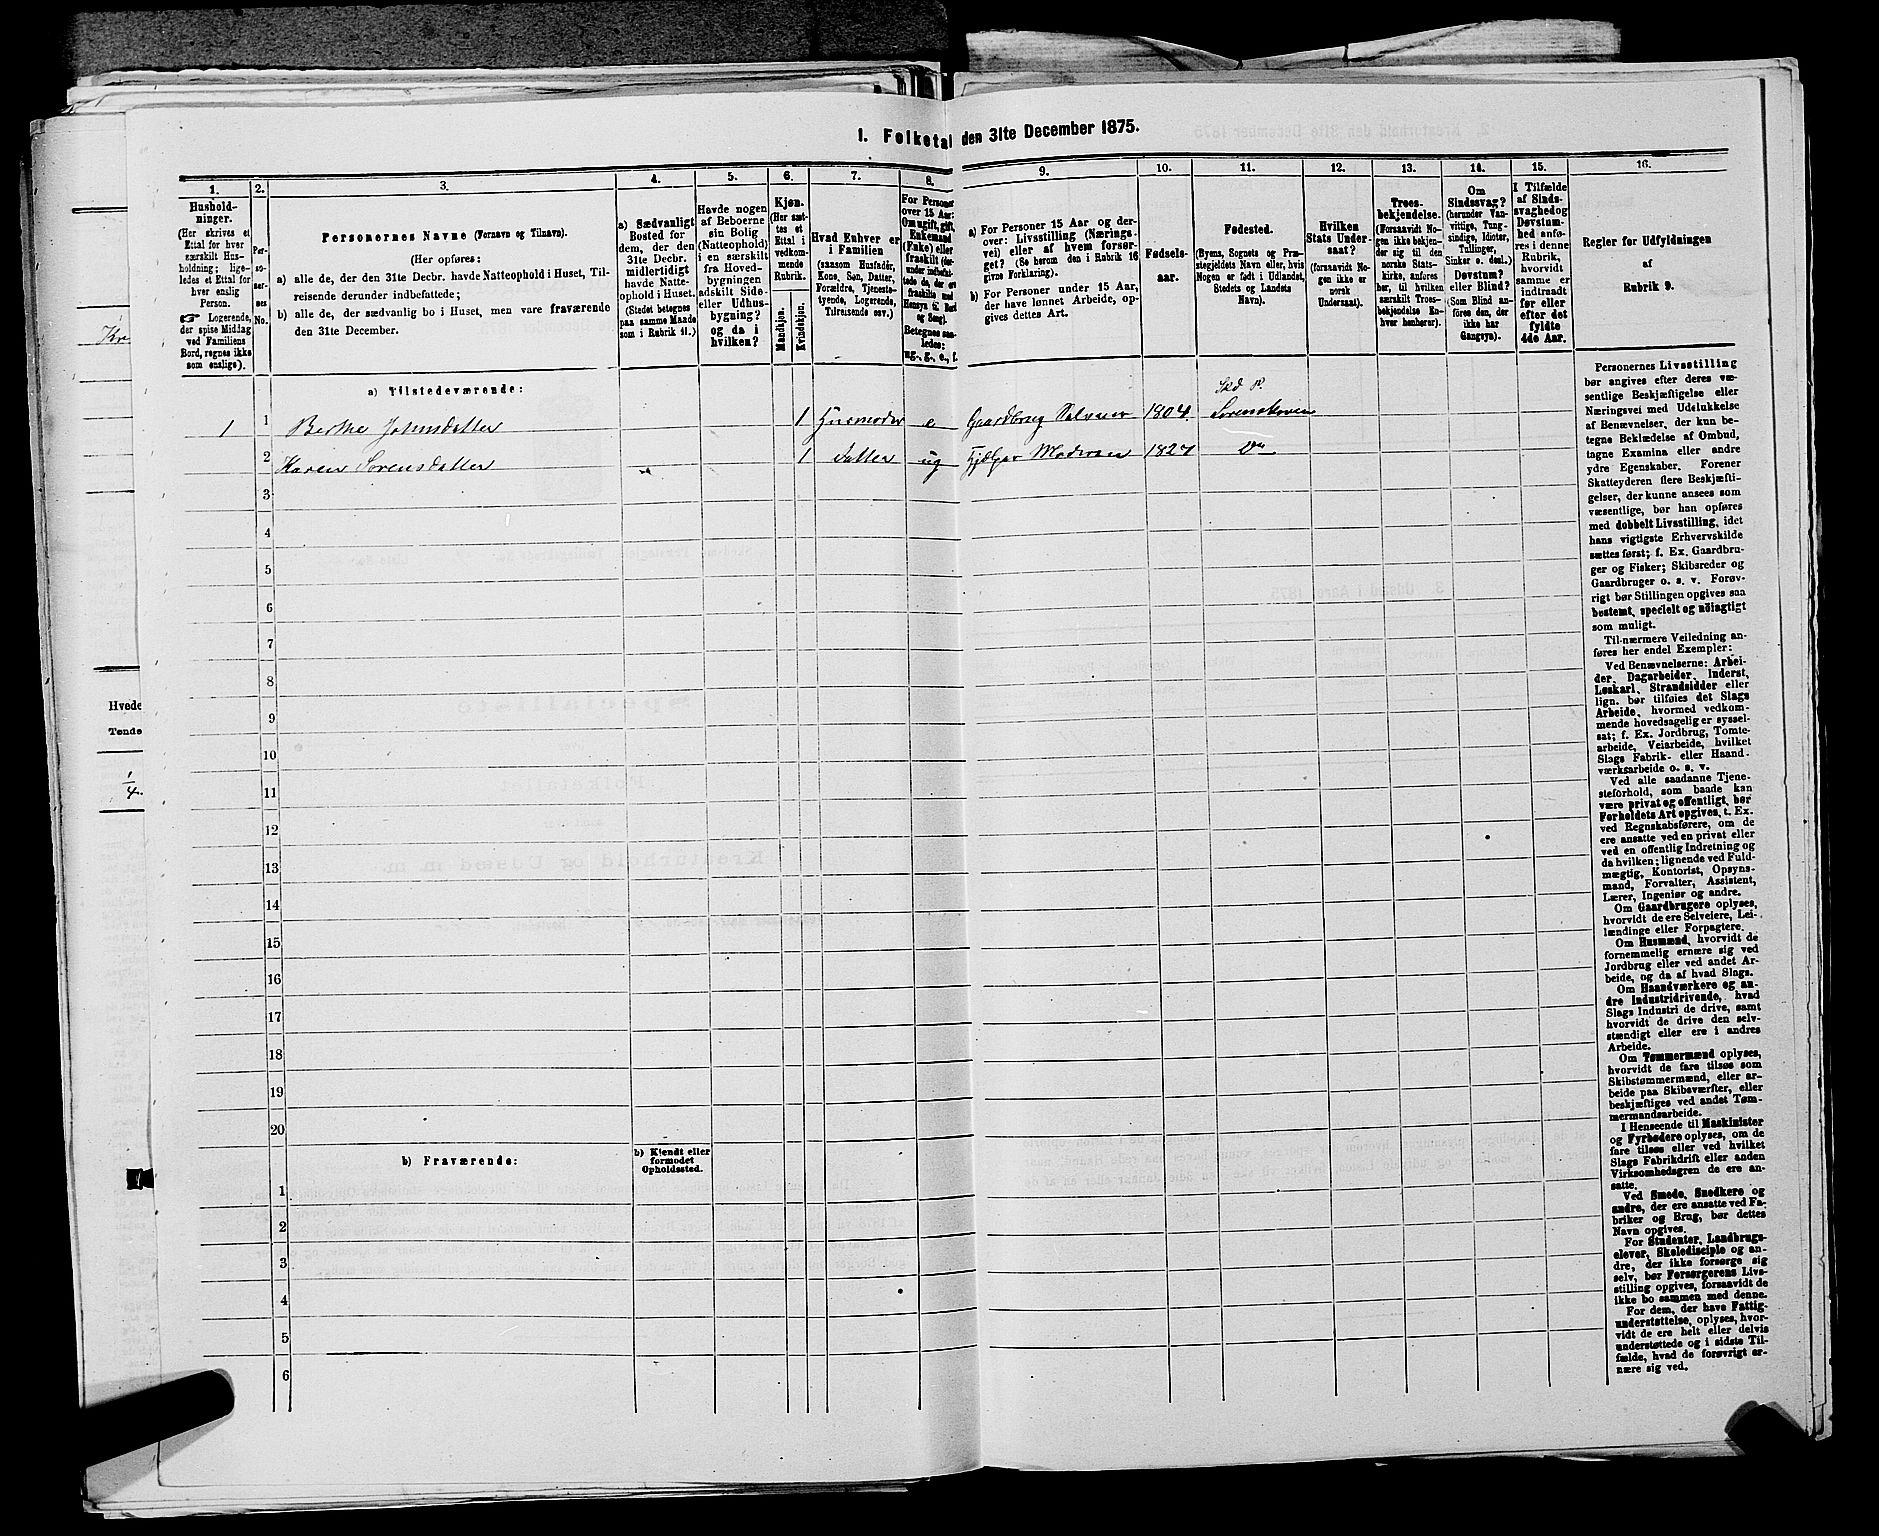 1. Folketal den 31te December 1875.
1. 2. 3. 4. 5. 6. 7. 8. 9. 10. 11. 12. 13. 14. 15. 16.
Hushold-
ninger.
(Her skrives et
Ettal for hver
særskilt Hus-
holdning; lige-
ledes et Ettal for
hver enslig
Person.
☞ Logerende,
der spise Middag
ved Familiens
Bord, regnes ikke
som enslige).
Per-
so-
ner-
nes
No.
Personernes Navne (Fornavn og Tilnavn).
(Her opføres:
a) alle de, der den 31te Decbr. havde Natteophold i Huset, Til-
reisende derunder indbefattede;
b) alle de, der sædvanlig bo i Huset, men vare fraværende
den 31te December.
a) Sædvanligt
Bosted for
dem, der den
31te Decbr.
midlertidigt
havde Natte-
ophold i Huset.
(Stedet betegnes
paa samme Maade
som i Rubrik 11.)
Havde nogen
af Beboerne
sin Bolig
(Natteophold)
i en særskilt
fra Hoved-
bygningen
adskilt Side-
eller Udhus-
bygning?
og da i
hvilken?
Kjøn.
(Her sæt-
tes et
Ettal i
vedkom-
mende
Rubrik.
Mandkjøn.
Kvindekjøn.
Hvad Enhver er
i Familien
(saasom Husfader,
Kone, Søn, Datter,
Forældre, Tjeneste-
tyende, Logerende,
Tilreisende osv.)
For Personer
over 15 Aar:
Om ugift, gift,
Enkemand
(Enke) eller
fraskilt
Betegnes saa-
ledes:
ug., g., e., f.
a) For Personer 15 Aar og der-
over: Livsstilling (Nærings-
vei) eller af hvem forsør-
get? (Se herom den i Rubrik 16
givne Forklaring).
b) For Personer under 15 Aar,
der have lønnet Arbeide, op-
gives dettes Art.
Fødsels-
aar.
Fødested.
(Byens, Sognets og Præ-
stegjeldets Navn eller, hvis
Nogen er født i Udlandet,
Stedets og Landets
Navn).
Hvilken
Stats Under-
saat?
(forsaavidt No-
gen ikke er
norsk
Undersaat).
Troes-
bekjendelse.
(Forsaavidt No-
gen ikke bekjen-
der sig til den
norske Stats-
kirke, anføres
her, til hvilken
særskilt Troes-
bekjendelse En-
hver henhører).
Om
Sindssvag?
(herunder Van-
vittige, Tung-
sindige, Idioter,
Tullinger,
Sinker o. desl.)
Døvstum?
eller Blind?
(Som Blind an-
føres den, der
ikke har
Gangsyn).
I Tilfælde
af Sinds-
svaghed og
Døvstum-
hed anfø-
res i denne
Rubrik,
hvorvidt
samme er
indtraadt
før eller
efter det
fyldte
4de Aar.
Regler for Udfyldningen
af
Rubrik 9.
a) Tilstedeværende:
Skd P.
1 1 Berthe Johnsdatter 1 Husmoder e Gaardbrug Selveier 1804
2 Karen Sorensdatter 1 Datter ug Hjælper Moderen 1827 Do
3
4
5
6
7
8
9
10
11
12
13
14
15
16
17
18
19
20
b) Fraværende:
b) Kjendt eller
formodet
Opholdssted.
1
2
3
4
5
6
Personernes Livsstilling
bør angives efter deres væ-
sentlige Beskjæftigelse eller
Næringsvei med Udelukkelse
af Benævnelser, der kun be-
tegne Beklædelse af Ombud,
tagne Examina eller andre
ydre Egenskaber. Forener
Skatteyderen flere Beskjæfti-
gelser, der kunne ansees som
væsentlige, bør han opføres
med dobbelt Livsstilling, idet
hans vigtigste Erhvervskilde
sættes først; f. Ex. Gaardbru-
ger og Fisker; Skibsreder og
Gaardbruger o. s. v. Forøv-
rigt bør Stillingen opgives saa
bestemt, specielt og nöiagtigt
som muligt.
Til nærmere Veiledning an-
føres her endel Exempler:
Ved Benævnelserne: Arbei-
der, Dagarbeider, Inderst,
Løskarl, Strandsidder eller
lign. bør tilføies det Slags
Arbeide, hvormed vedkom-
mende hovedsagelig er syssel-
sat; f. Ex. Jordbrug, Tomte-
arbeide, Veiarbeide, hvilket
Slags Fabrik- eller Haand-
værksarbeide o. s. v.
Ved alle saadanne Tjene-
steforhold, som baade kan
være privat og offentligt, bør
Forholdets Art opgives, t. Ex.
ved Regnskabsførere, om de
ere ansatte ved en privat eller
ved en offentlig Indretning og
da hvilken; lignende ved Fuld-
mægtig, Kontorist, Opsyns-
mand, Forvalter, Assistent,
Lærer, Ingeniør og andre.
Om Gaardbrugere oplyses,
hvorvidt de ere Selveiere, Lei-
lændinge eller Forpagtere.
Om Husmænd, hvorvidt de
fornemmelig ernære sig ved
Jordbrug eller ved andet Ar-
beide, og da af hvad Slags.
Om Haandværkere og an-
dre Industridrivende, hvad
Slags Industri de drive, samt
hvorvidt de drive den selv-
stændigt eller ere i andres
Arbeide.
Om Tømmermænd oplyses,
hvorvidt de fare tilsøs som
Skibstømmermænd, eller ar-
beide paa Skibsværfter, eller
beskjæftiges ved andet Tøm-
mermandsarbeide.
I Henseende til Maskinister
og Fyrbødere oplyses, om de
fare tilsøs eller ved hvilket
Slags Fabrikdrift eller anden
Virksomhedsgren de ere an-
satte.
Ved Smede, Snedkere og
andre, der ere ansatte ved Fa-
briker og Brug, bør dettes
Navn opgives.
For Studenter, Landbrugs-
elever, Skoledisciple og an-
dre, der ikke forsørge sig
selv, bør Forsørgerens Livs-
stilling opgives, forsaavidt de
ikke bo sammen med denne.
For dem, der have Fattig-
understøttelse, oplyses, hvor-
vidt de ere helt eller delvis
understøttede og i sidste Til-
fælde, hvad de forøvrigt er-
nære sig ved.
Hvede
Tønde
1/4